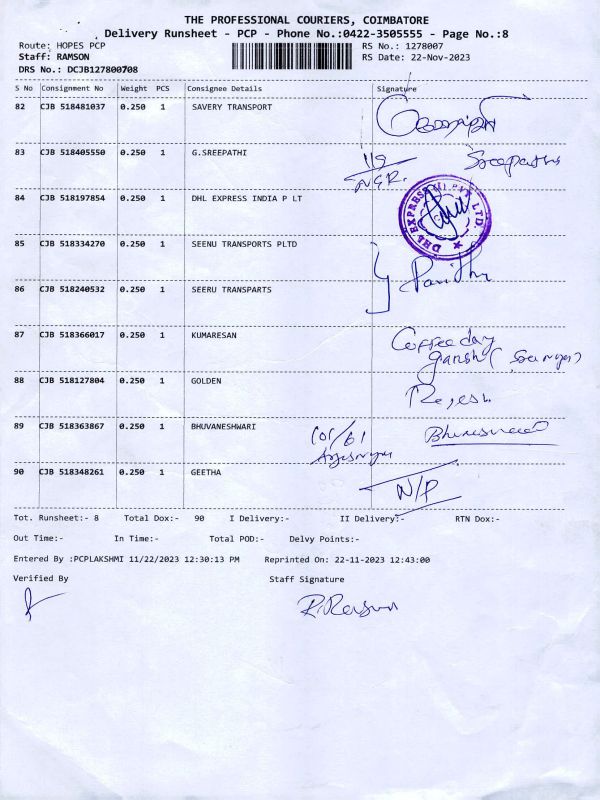 THE PROFESSIONAL COURIERS, COIMBATORE
Delivery Runsheet - PCP - Phone No.:0422-3505555 - Page No.:8
Route: HOPES PCP RS No.: 1278007
Staff: RAMSON RS Date: 22-Nov-2023
DRS No.: DCJB127800708
S No Consignment No Weight PCS Consignee Details Signature
82 CJB 518481037 0.250 1 SAVERY TRANSPORT
83 CJB 518405550 0.250 1 G.SREEPATHI 119 Sreepathi
NGR.
84 CJB 518197854 0.250 1 DHL EXPRESS INDIA P LT
DHL EXPRESS (I) PVT. LTD.
85 CJB 518334270 0.250 1 SEENU TRANSPORTS PLTD
86 CJB 518240532 0.250 1 SEERU TRANSPARTS
87 CJB 518366017 0.250 1 KUMARESAN Coffee day
88 CJB 518127804 0.250 1 GOLDEN
89 CJB 518363867 0.250 1 BHUVANESHWARI
90 CJB 518348261 0.250 1 GEETHA N/P
Tot. Runsheet:- 8 Total Dox:- 90 I Delivery:- II Delivery:- RTN Dox:-
Out Time:- In Time:- Total POD:- Delvy Points:-
Entered By :PCPLAKSHMI 11/22/2023 12:30:13 PM Reprinted On: 22-11-2023 12:43:00
Verified By Staff Signature